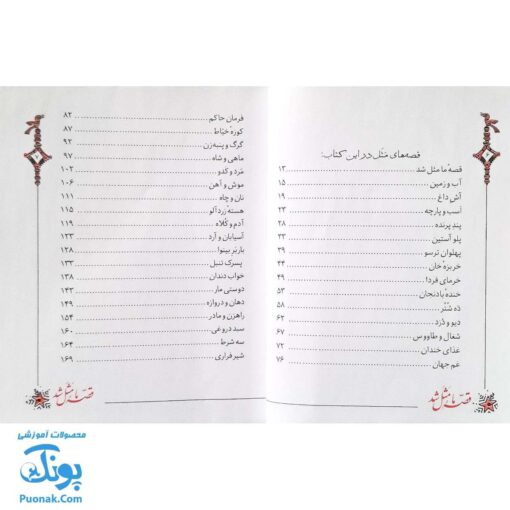 قصه‌های مَثَل در این کتاب:
قصهٔ ما مثل شد ۱۳
آب و زمین ۱۵
آش داغ ۱۹
اسب و پارچه ۲۳
پندِ پرنده ۲۸
پلو آستین ۳۳
پهلوان ترسو ۳۹
خربزه خان ۴۴
خرمای فردا ۴۹
خنده بادنجان ۵۳
ده شتر ۵۸
دیو و دُزد ۶۲
شغال و طاووس ۶۷
غذای خندان ۷۲
غم جهان ۷۶
قصهٔ ما مثل شد
۷
فرمان حاکم ۸۲
کوزهٔ خیاط ۸۷
گرگ و پنبه‌زن ۹۲
ماهی و شاه ۹۷
مَرد و کدو ۱۰۲
موش و آهن ۱۰۶
نان و چاه ۱۱۱
هستهٔ زردآلو ۱۱۵
آدم و کُلاه ۱۱۹
آسیابان و آرد ۱۲۳
باربَر بینوا ۱۲۸
پسرک تنبل ۱۳۳
خواب دندان ۱۳۸
دوستی مار ۱۴۳
دهان و دروازه ۱۴۹
راهزن و مادر ۱۵۴
سبد دروغی ۱۶۰
سه شرط ۱۶۴
شیر فراری ۱۶۹
قصهٔ ما مثل شد
محصولات آموزشی
پونک
Puonak.Com